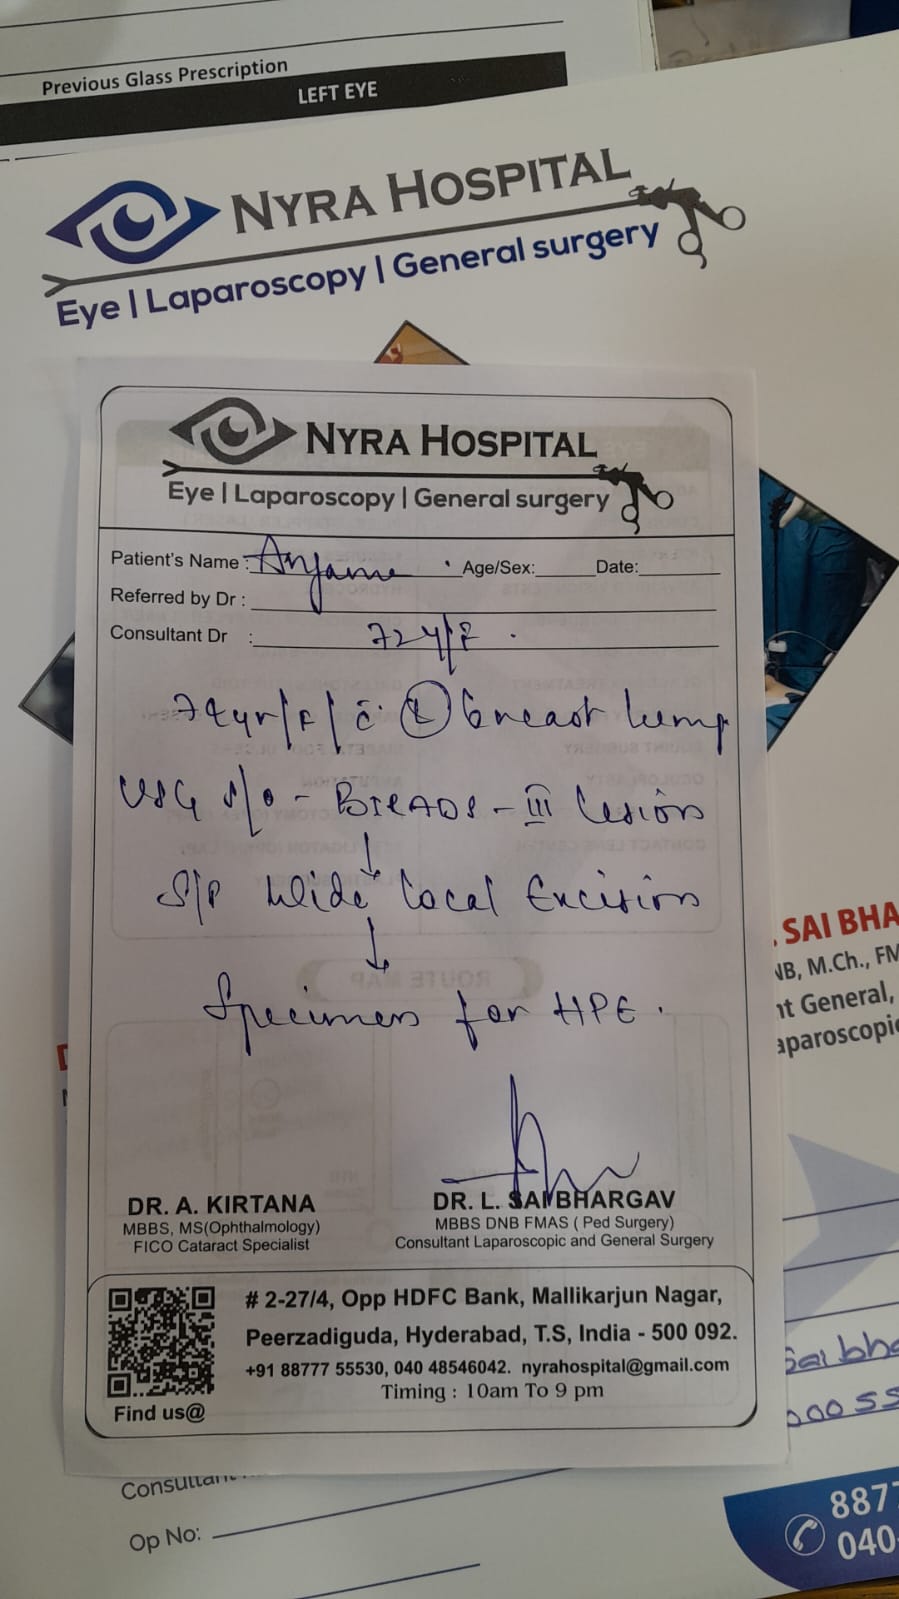 Previous Glass Prescription
LEFT EYE
NYRA HOSPITAL
Eye | Laparoscopy | General surgery
NYRA HOSPITAL
Eye | Laparoscopy | General surgery
Patient's Name : Anjame Age/Sex: Date:
Referred by Dr :
Consultant Dr : 72y/F
72yr/F/ c̄ Ⓛ breast lump
USG S/o - BIRADS - III lesion
↓
S/P Wide local Excision
↓
Specimen for HPE.
DR. A. KIRTANA
MBBS, MS(Ophthalmology)
FICO Cataract Specialist
DR. L. SAI BHARGAV
MBBS DNB FMAS ( Ped Surgery)
Consultant Laparoscopic and General Surgery
Find us@
# 2-27/4, Opp HDFC Bank, Mallikarjun Nagar,
Peerzadiguda, Hyderabad, T.S, India - 500 092.
+91 88777 55530, 040 48546042. nyrahospital@gmail.com
Timing : 10am To 9 pm
. SAI BHA
NB, M.Ch., FM
nt General,
aparoscopic
Sai bha
00055
Consultan
Op No:
887
040-